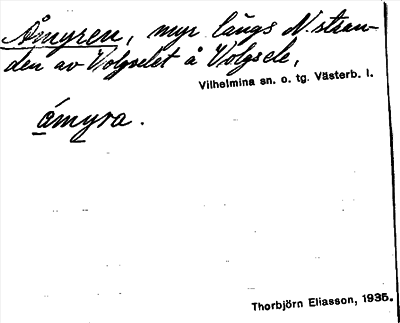 Åmyren, myr längs N. stran-
den av Volgselet å Volgsele,
Vilhelmina sn. o. tg. Västerb. l.
åmyra.
Thorbjörn Eliasson, 1935.